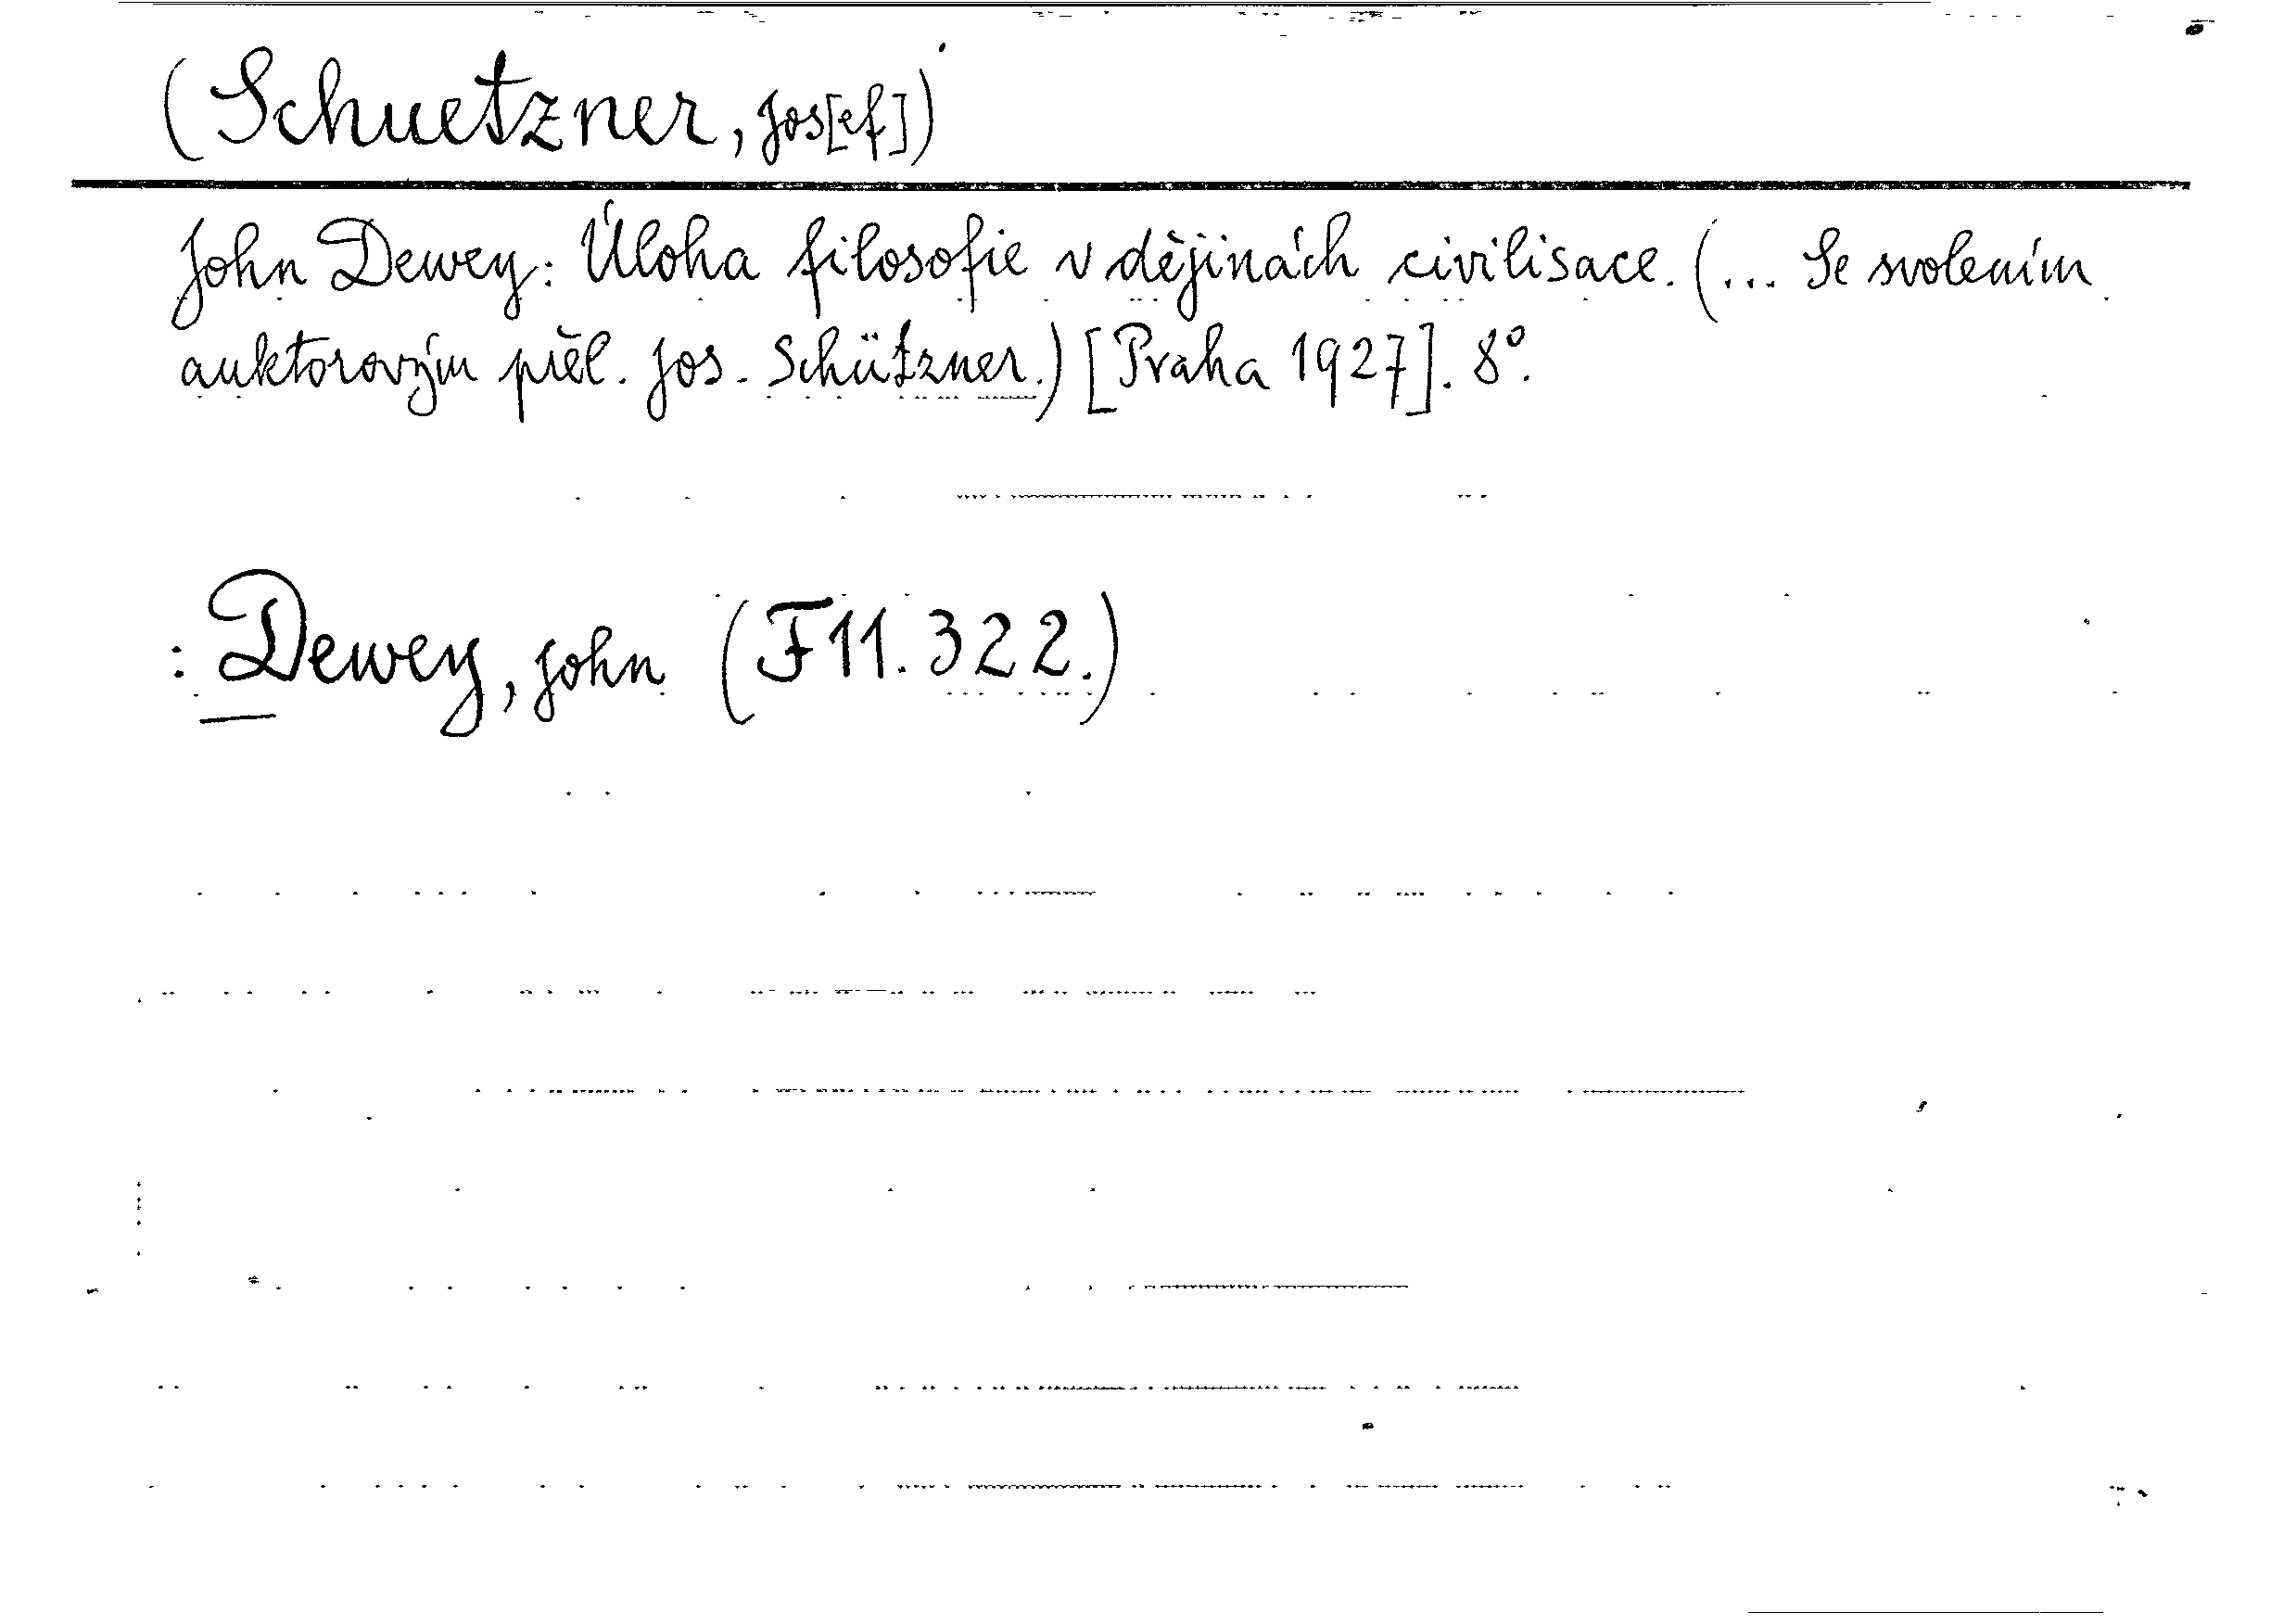 (Schuetzner, Jos[ef])
John Dewey: Úloha filosofie v dějinách civilisace. (... Se svolením
auktorovým přel. Jos. Schützner.) [Praha 1927]. 8°.
: Dewey, John (F 11.322.)